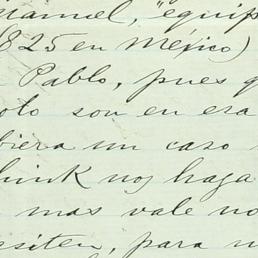 anuel, "equip
825 en México)
Pablo, pues q
olo son en era
biera un caso
hink nos haga
mas vale no
esiten, para n